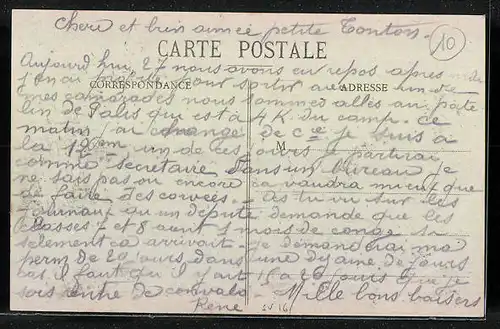 Chere et bien aimée petite Tonton.
10
CARTE POSTALE
Aujourd hui 27 nous avons eu repos après midi
CORRESPONDANCE
ADRESSE
j'en ai profité pour sortir avec un de
mes camarades nous sommes allés au petit
de Palis qui est à 4 K du camp. Ce
matin j'ai changé de Cie je suis à
la 12em un de ces jours je partirai
M
comme secretaire dans un bureau je
ne sais pas ou encore ca vaudra mieux que
de faire des corvées. As tu vu sur les
journaux qu un député demande que les
classes 7 et 8 aient 1 mois de congé si
selement ca arrivait. je demanderai ma
perm de 20 jours dans une dizaine de jours
il faut qu il y ait 15 a 20 jours que je
sois entré de convalo. Mille bons baisers
René